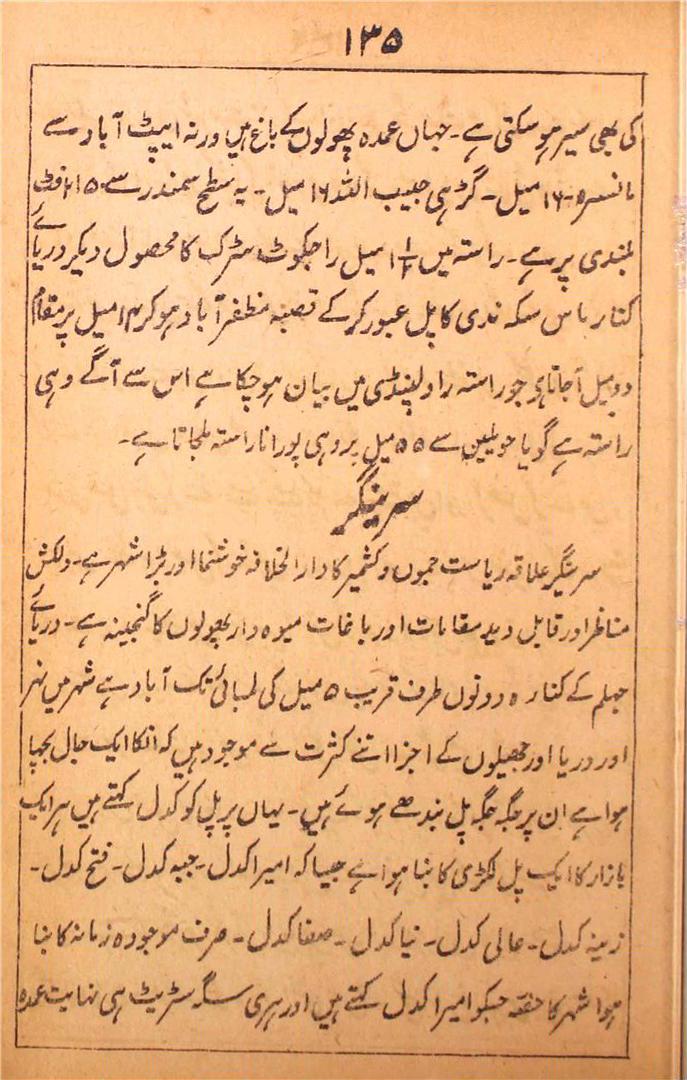 ۱۳۵
کی بھی سیر ہو سکتی ہے۔ جہاں عمدہ پھولوں کے باغ ہیں ورنہ ایبٹ آباد سے
مانسہرہ ۱۶ میل۔ گڑہی حبیب اللہ ۱۶ میل۔ یہ سطح سمندر سے فٹ
بلندی پر ہے۔ راستہ میں ۱۱/۲ میل راجکوٹ سڑک کا محصول دیکر دریائے
کنار باس سکہ ندی کا پل عبور کر کے قصبہ مظفر آباد ہو کر ۱۴ میل پر مقام
دو میل آجاتا ہے جو راستہ راولپنڈی میں بیان ہو چکا ہے اس سے آگے وہی
راستہ ہے گویا حویلین سے ۵۵ میل پر وہی پورانا راستہ ملجاتا ہے۔
سرینگر
سرینگر علاقہ ریاست جموں و کشمیر کا دارالخلافہ خوشنما اور بڑا شہر ہے۔ دلکش
مناظر اور قابل دید مقامات اور باغات میوہ دار پھولوں کا گنجینہ ہے۔ دریائے
جہلم کے کنارہ دونوں طرف قریب ۵ میل کی لمبائی تک آباد ہے شہر میں نہر
اور دریا اور جھیلوں کے اجزا اتنے کثرت سے موجود ہیں کہ انکا ایک جال بچھا
ہوا ہے ان پر جگہ جگہ پل بندھے ہوئے ہیں۔ یہاں پر پل کو کدل کہتے ہیں ہر ایک
بازار کا ایک پل لکڑی کا بنا ہوا ہے جیسا کہ امیرا کدل۔ حبہ کدل۔ فتح کدل۔
زینہ کدل۔ عالی کدل۔ نیا کدل۔ صفا کدل۔ صرف موجودہ زمانہ کا بنا
ہوا شہر کا حصہ جسکو امیرا کدل کہتے ہیں اور ہری سنگہ سٹریٹ ہی نہایت عمدہ